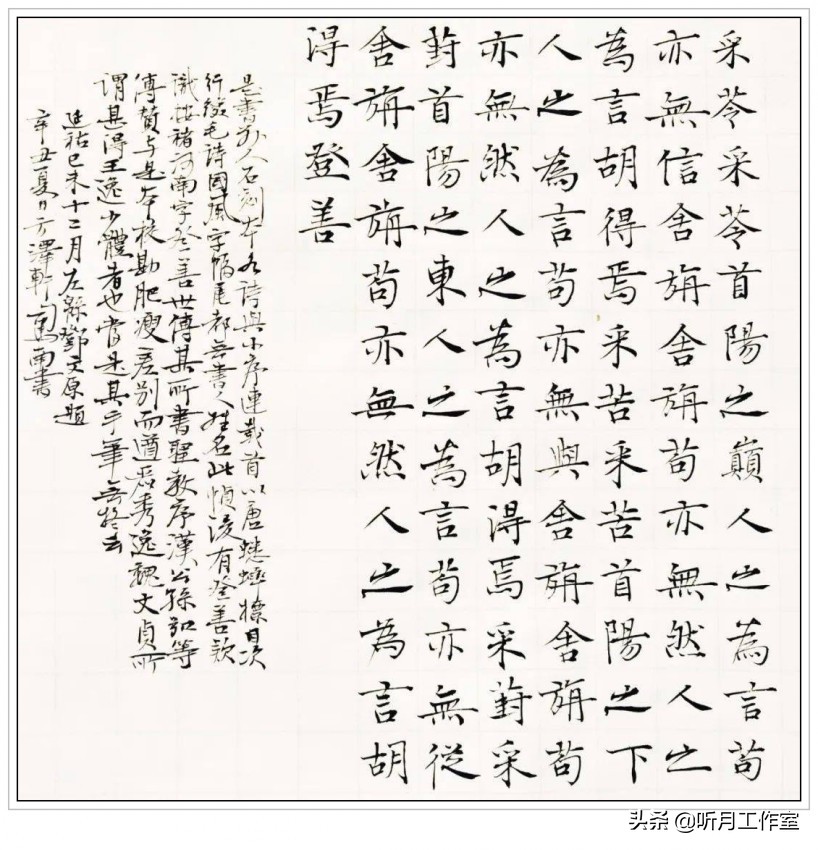 采苓采苓首陽之巔人之為言苟
亦無信舍旃舍旃苟亦無然人之
為言胡得焉采苦采苦首陽之下
人之為言苟亦無與舍旃舍旃苟
亦無然人之為言胡得焉采葑采
葑首陽之東人之為言苟亦無從
舍旃舍旃苟亦無然人之為言胡
得焉登善
是書前人石刻本各詩與小序連裁首以唐蟋蟀標目次
行綴毛詩國風字幅尾都無書人姓名此幀後有登善款
識按褚河南字登善世傳其所書聖教序漢公孫弘等
傳贊與是本校勘肥瘦差別而遒麗秀逸魏文貞所
謂甚得王逸少體者也當是其手筆無疑云
延祐己未十二月左綿鄧文原題
辛丑夏日方澤軒南書
头条 @听月工作室